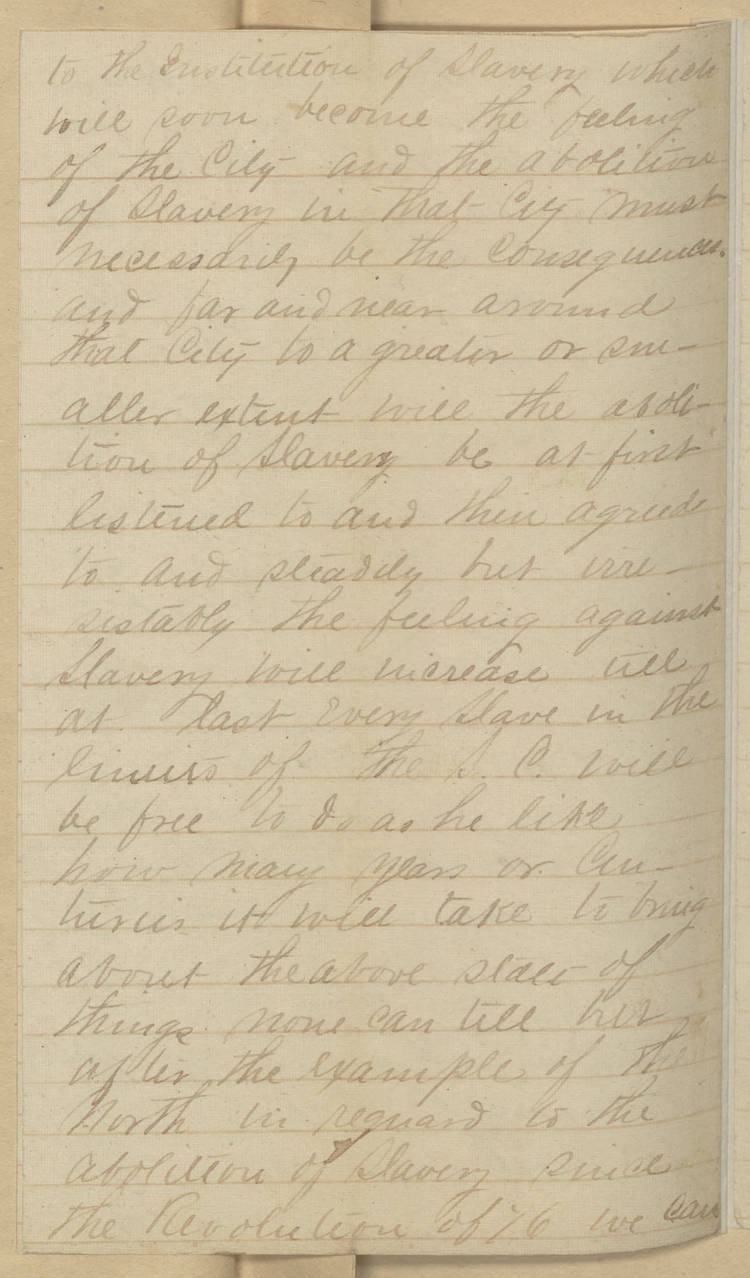 to the Institution of Slavery which
will soon become the feeling
of the City and the abolition
of Slavery in that City must
necessarily be the Consequences.
and far and near around
that City to a greater or sm-
aller extent will the aboli-
tion of Slavery be at first
listened to and then agreed
to and steadily but irre-
sistably the feeling against
Slavery will increase till
at last Every Slave in the
limits of the S. C. will
be free to do as he like
how many years or Cen-
turies it will take to bring
about the above state of
things none can tell but
after the example of the
North in reguard to the
abolition of Slavery since
the Revolution of 76 we can